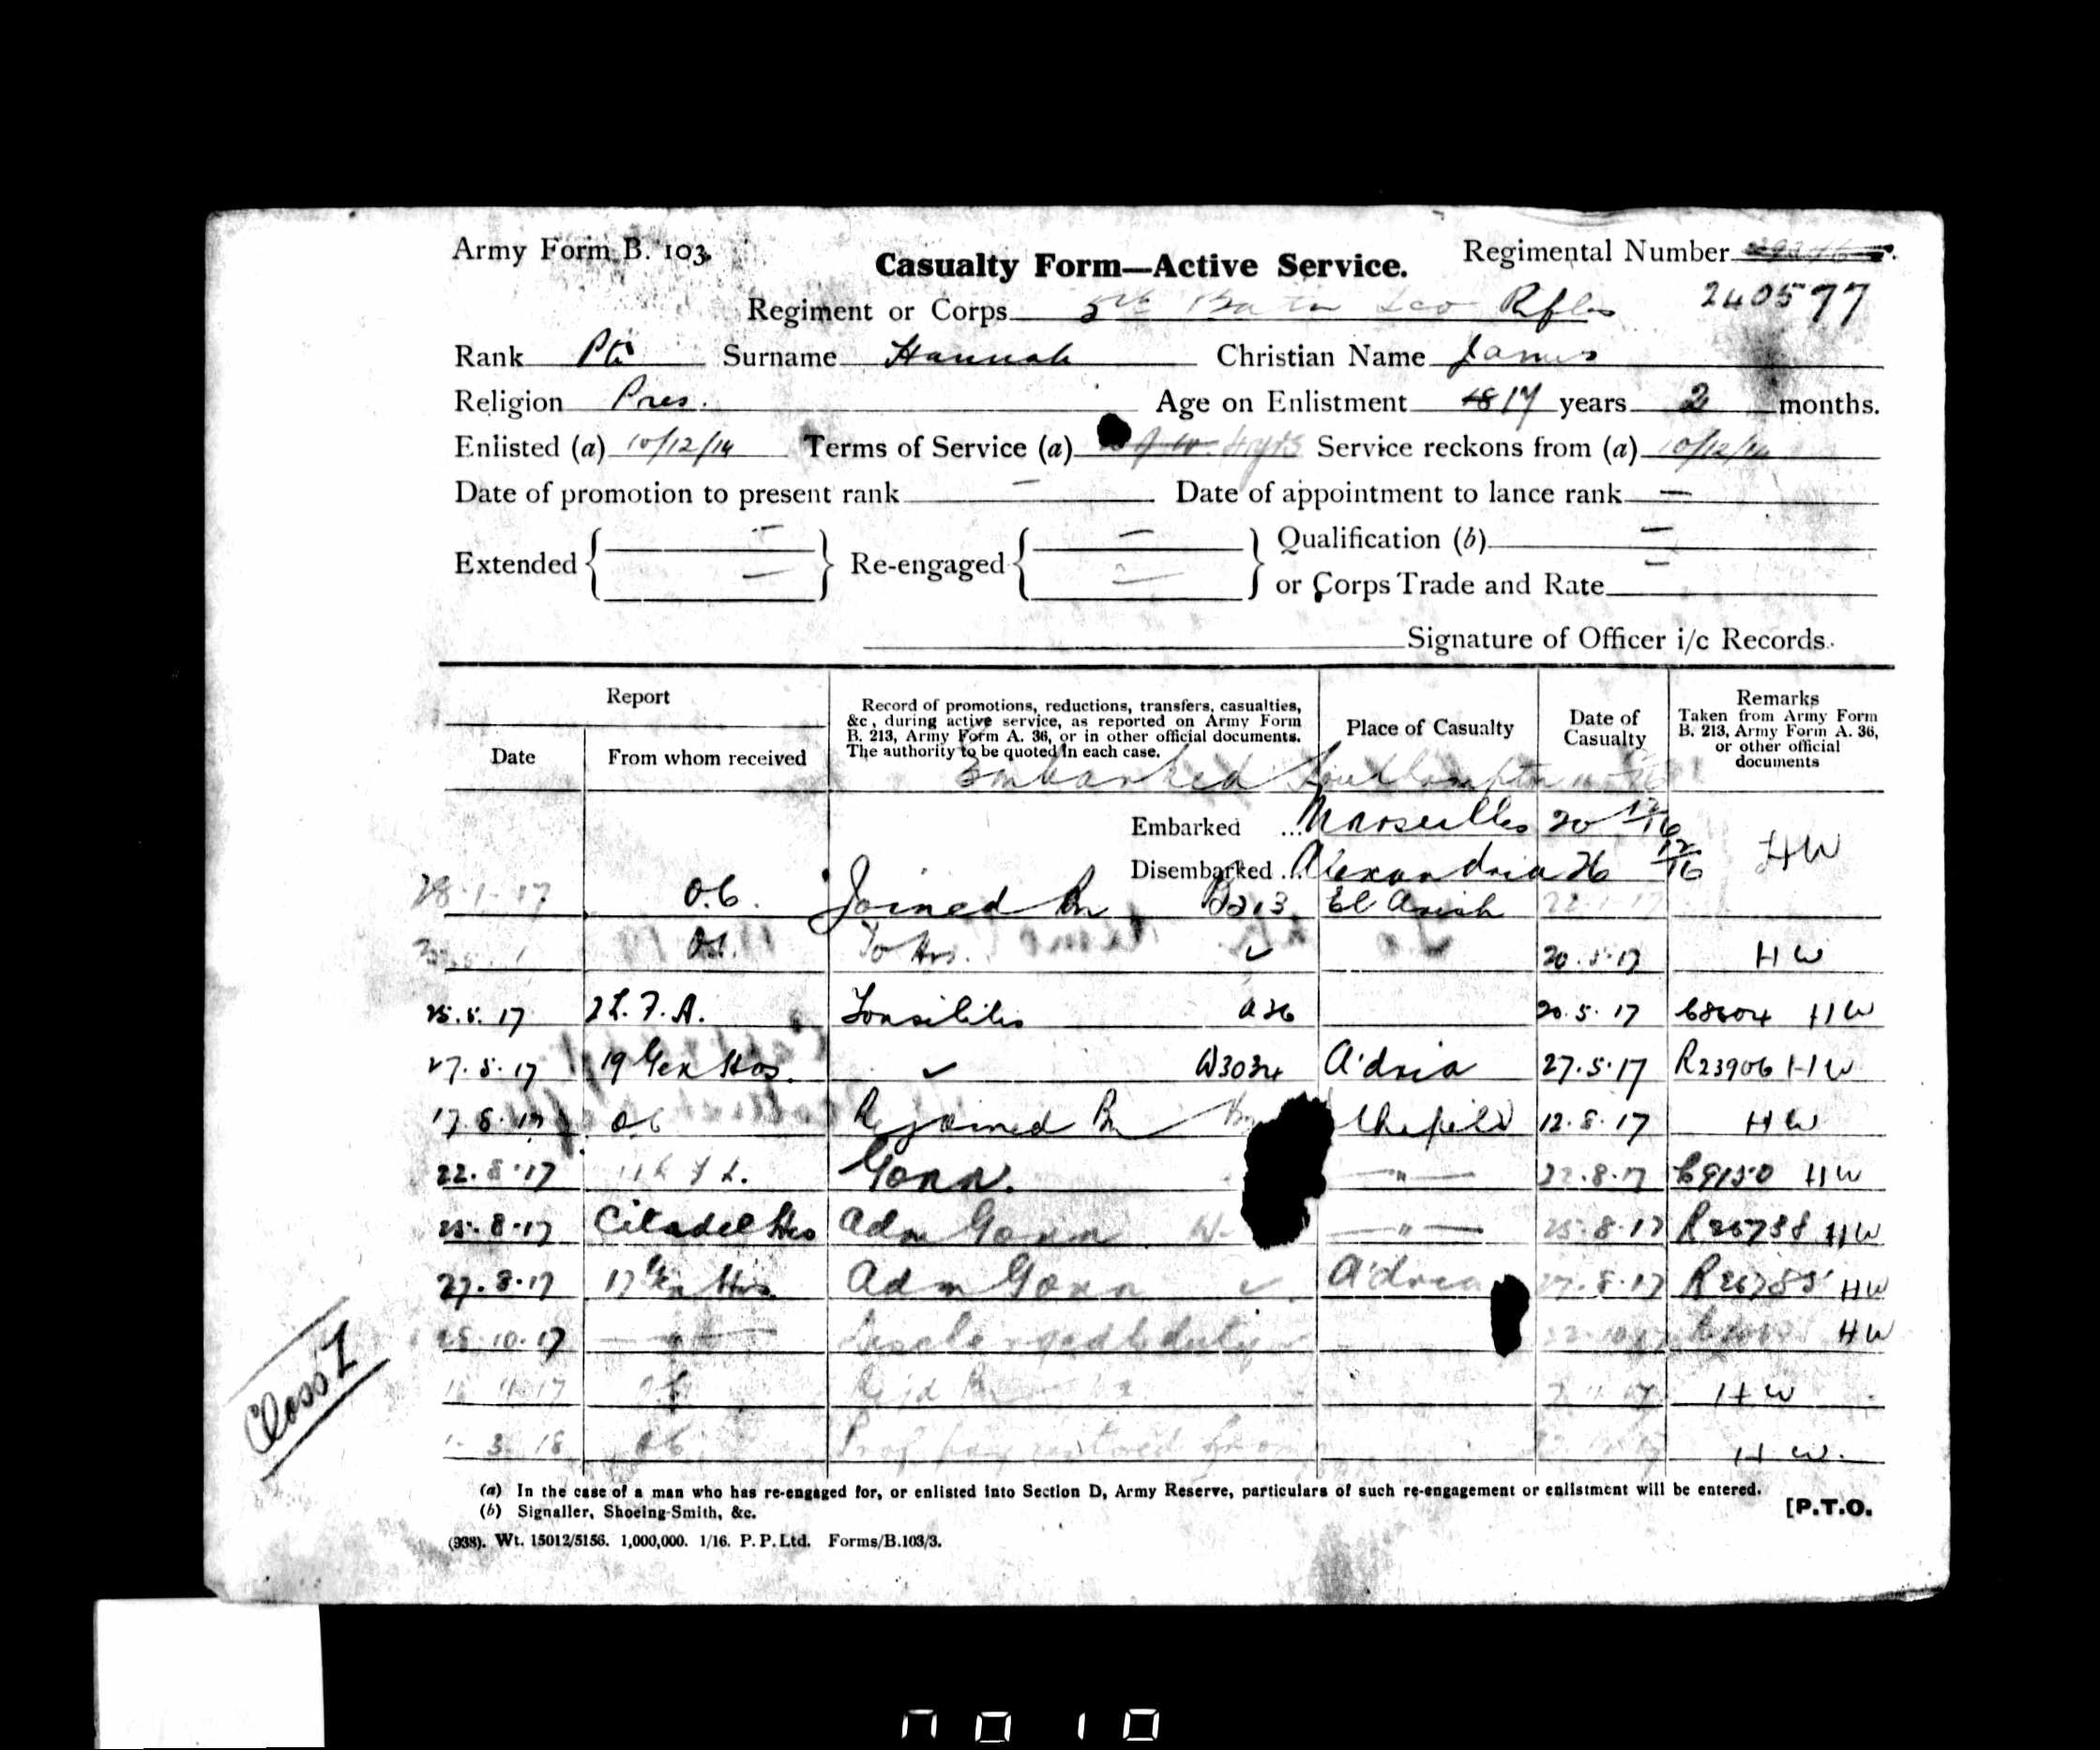 Army Form B. 103.
Casualty Form—Active Service.
Regimental Number
240577
Regiment or Corps 5th Batn Sco Rifles
Rank Pte Surname Hannah Christian Name James
Religion Pres. Age on Enlistment 18 17 years 2 months.
Enlisted (a) 10/12/14 Terms of Service (a) 4 yrs Service reckons from (a) 10/12/14
Date of promotion to present rank — Date of appointment to lance rank —
Extended Re-engaged Qualification (b)
or Corps Trade and Rate
Signature of Officer i/c Records.
Report
Date
From whom received
Record of promotions, reductions, transfers, casualties, &c., during active service, as reported on Army Form B. 213, Army Form A. 36, or in other official documents. The authority to be quoted in each case.
Place of Casualty
Date of Casualty
Remarks
Taken from Army Form B. 213, Army Form A. 36, or other official documents
Embarked Southampton
Embarked ... Marseilles 20 12/16
Disembarked ... Alexandria 26 12/16 HW
28.1.17 O.C. Joined Bn B213 El Arish 22.1.17
O.C. To Hos. 20.5.17 HW
25.5.17 2 L.F.A. Tonsilitis A36 20.5.17 HW
27.5.17 19 Gen Hos. W3034 A'dria 27.5.17 R23906 HW
17.8.17 OC Rejoined Bn 12.8.17 HW
22.8.17 Gonn. — " — 22.8.17 C9150 HW
25.8.17 Citadel Hos Adm Gonn W — " — 25.8.17 HW
27.8.17 17 Gen Hos. Adm Gonn A'dria 27.8.17 HW
28.10.17 — " — Discharged to duty HW
11.17 Rejd Bn HW
1.3.18 OC Prof pay restored from HW.
Class I
(a) In the case of a man who has re-engaged for, or enlisted into Section D, Army Reserve, particulars of such re-engagement or enlistment will be entered.
(b) Signaller, Shoeing-Smith, &c.
[P.T.O.
(938). Wt. 15012/5156. 1,000,000. 1/16. P. P. Ltd. Forms/B.103/3.